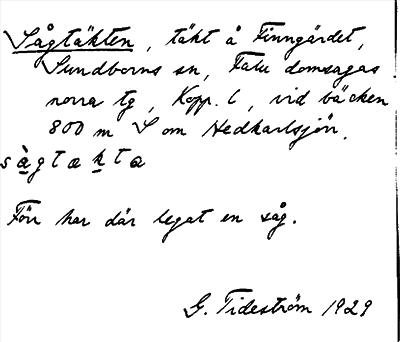 Sågtäkten, täkt å Finngärdet,
Sundborns sn, Falu domsagas
norra tg, Kopp. l, vid bäcken
800 m S om Hedkarlsjön.
sàgtækta
Förr har där legat en såg.
G. Tideström 1929